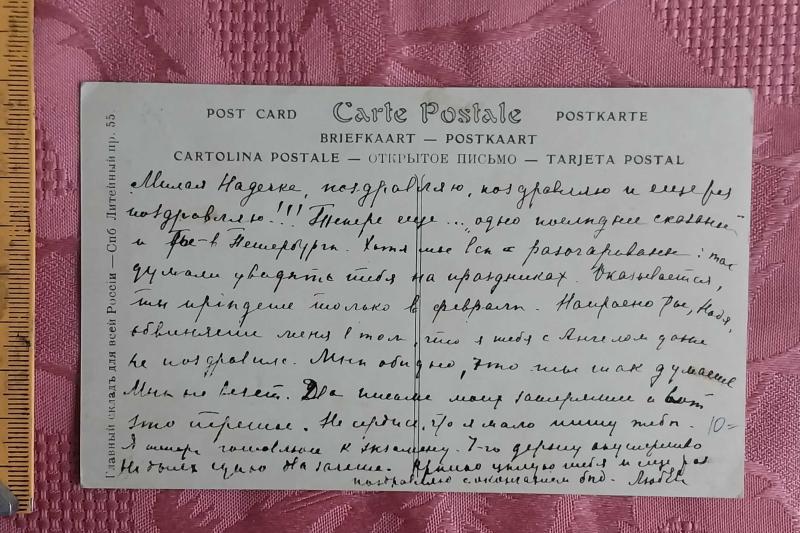 POST CARD Carte Postale POSTKARTE
BRIEFKAART — POSTKAART
CARTOLINA POSTALE — ОТКРЫТОЕ ПИСЬМО — TARJETA POSTAL
Главный складъ для всей Россіи—Спб Литейный пр. 55.
Милая Надечка, поздравляю, поздравляю и еще раз
поздравляю!!! Теперь еще... одно последнее
и Ты-в Петербурге. Хотя мы все разочарованы: так
думали увидеть тебя на праздниках. Оказывается,
ты приедешь только в феврале. Напрасно Ты, Надя,
обвиняешь меня в том, что я тебя с Ангелом даже
не поздравила. Мне обидно, что ты так думаешь
Мне не везет. Два письма моих затеряны и вот
это третье. Не сердись, что я мало пишу тебе. 10=
Я теперь готовлюсь к экзамену. 7-го держу
Крепко целую тебя и еще раз
поздравляю с окончанием Люба